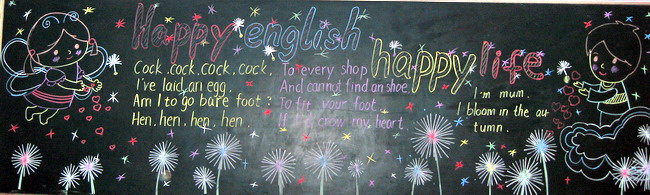 Happy english
happy life
Cock, cock, cock, cock.
I've laid an egg.
Am I to go bare foot?
Hen, hen, hen, hen.
To every shop
And cannot find an shoe
To fit your foot
crow my heart.
I'm mum.
I bloom in the au
tumn.